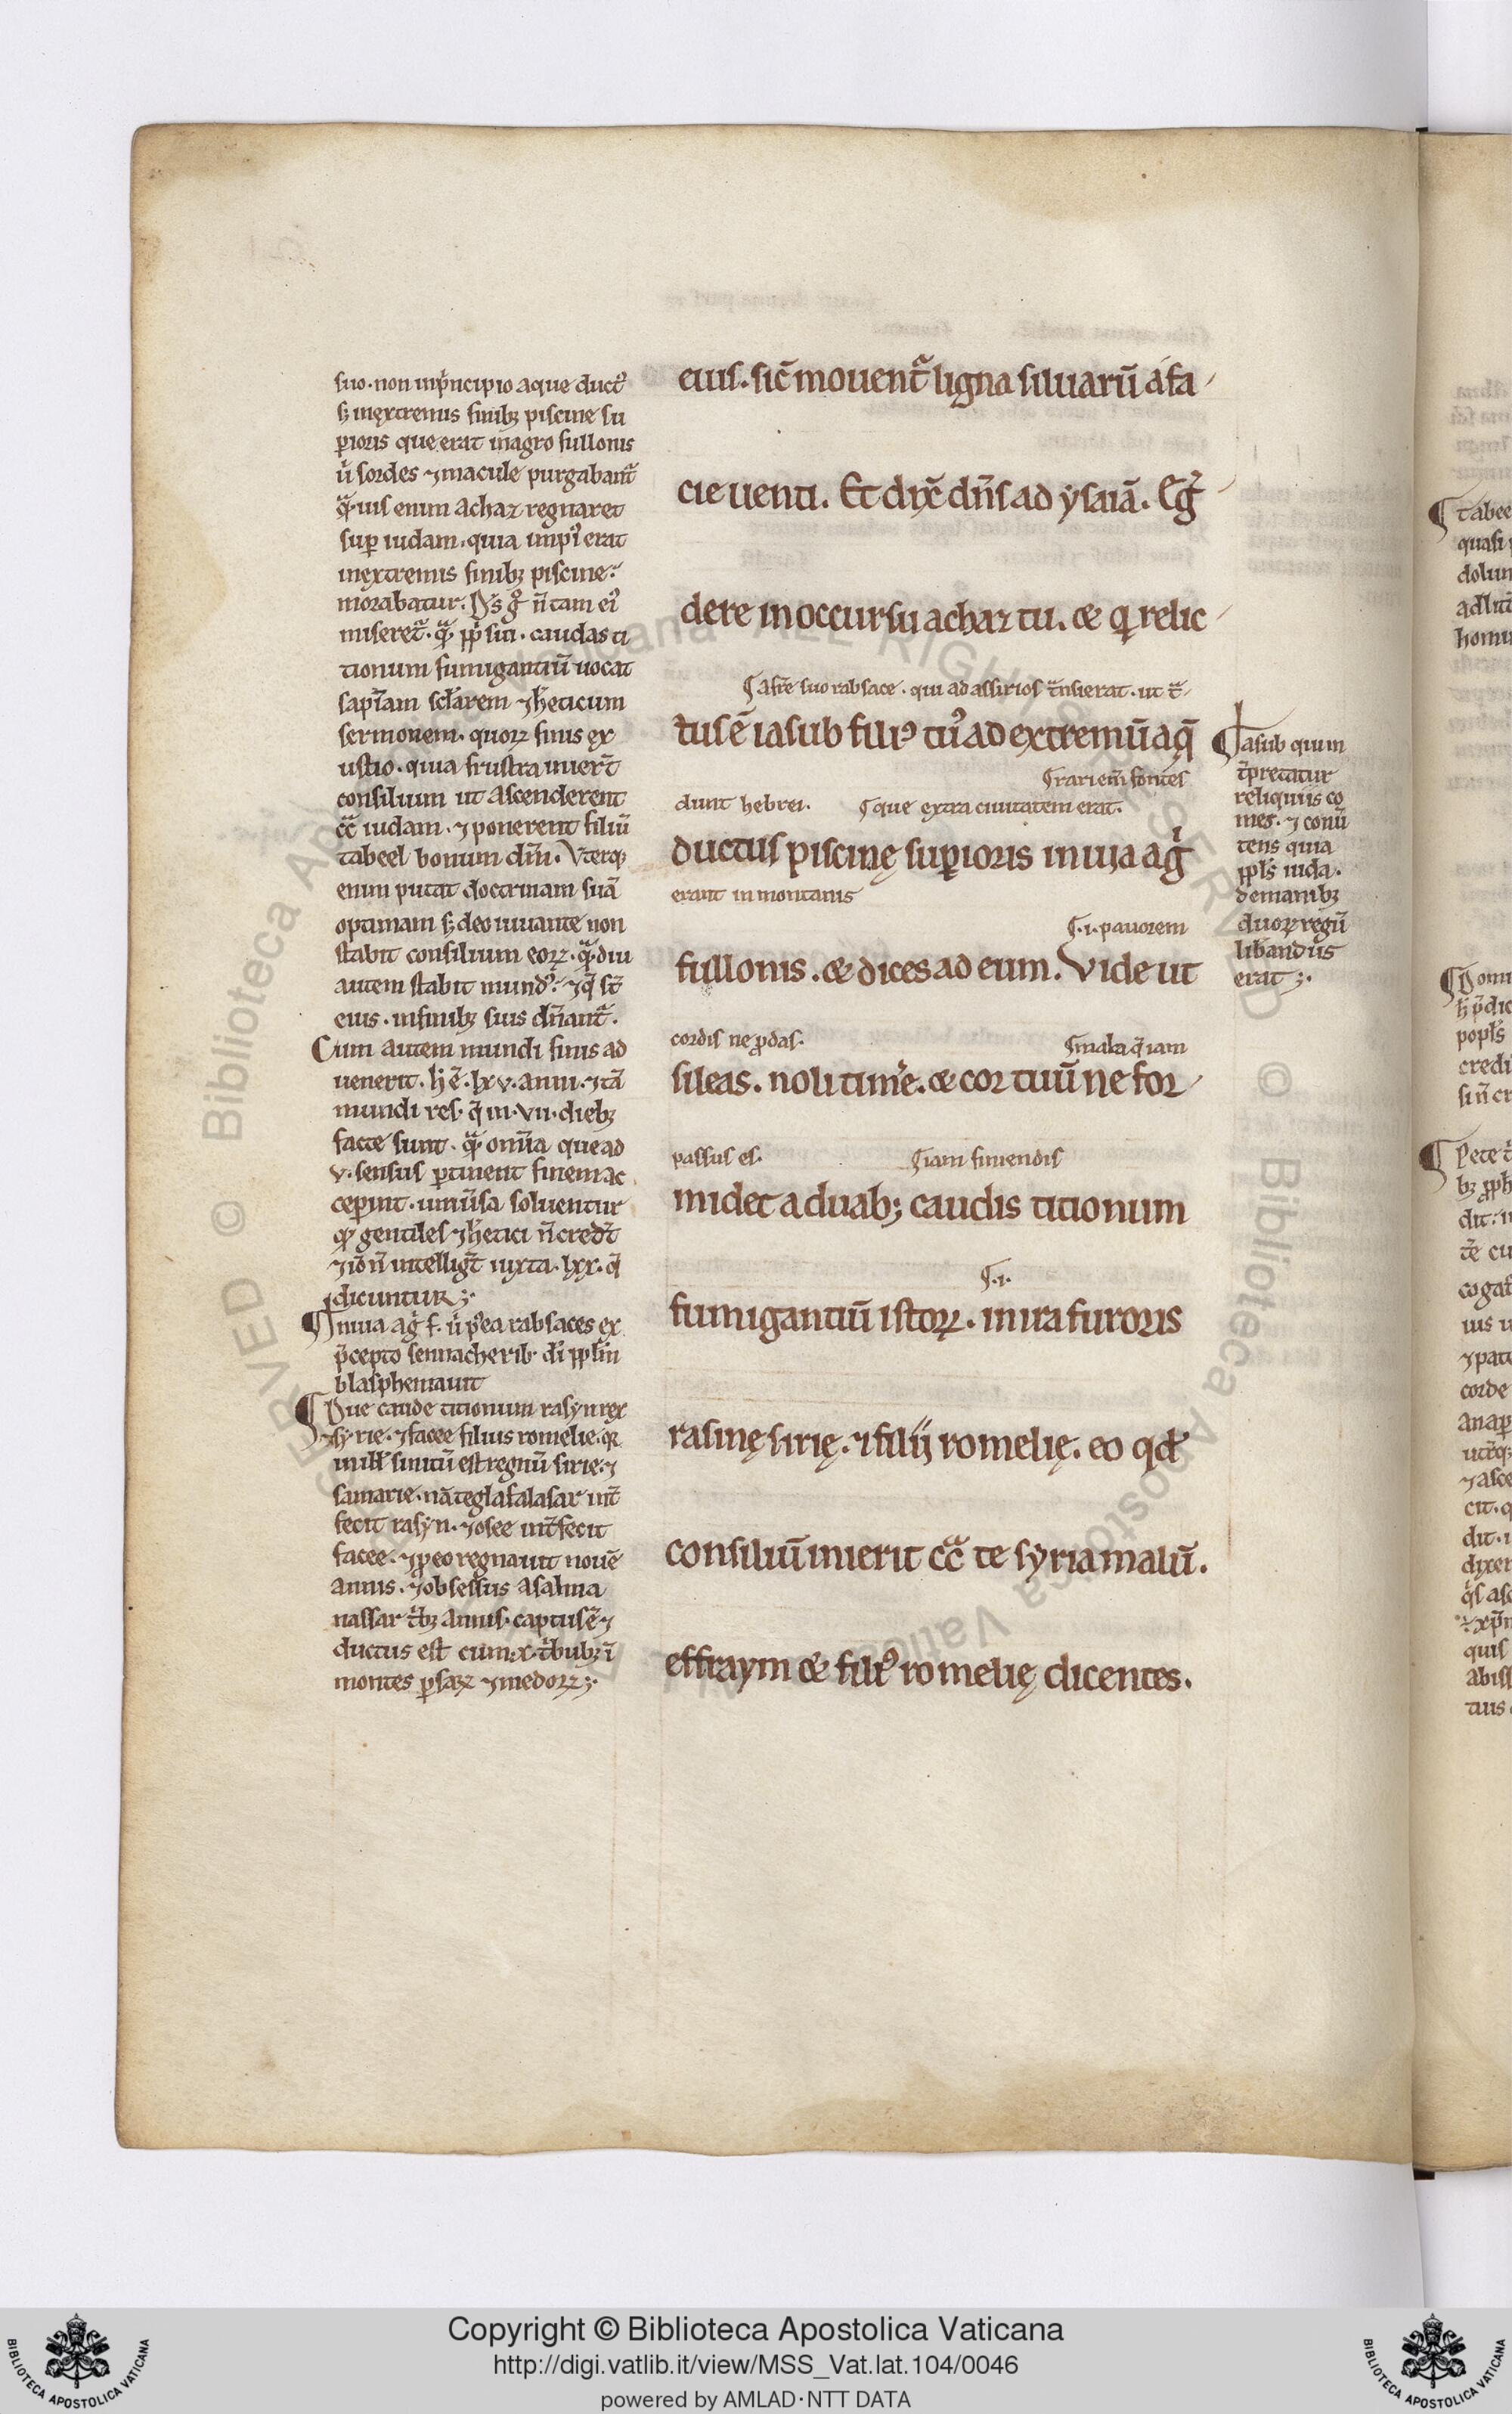 suo·non inp̃ncipio aque duct᷒
sꝫ inęxtremis finibꝫ piscine su
ꝑioris que erat inagro fullonis
u̍ sordes ⁊macule purgabant᷑
q̃uis enim achaz regnaret
suꝑ iudam·quia impi᷒ erat
inęxtremis finibꝫ piscine·
morabatur. D̃s g̊ ñ tam ei᷒
miseret᷑·q̃ ꝓpl̃i sui·caudas ti
tionum fumigantiũ uocat
sapĩam sc̃larem ⁊h̃eticum
sermonem·quoꝝ finis ex
ustio·quia frustra inier̃t
consilium ut ascenderent
cc̃ iudam·⁊ponerent filiũ
tabeel bonum dñm·Vterqꝫ
enim putat doctrinam suã
optimam sꝫ deo iuuante non
stabit consilium eoꝝ·q̃diu
autem stabit mund᷒·⁊q̃ s̃t
eius·infinibꝫ suis dñant᷑.
Cum autem mundi finis ad
uenerit·h̃ ẽ·lxv·anni·⁊tã
mundi res·q̃ in·vii·diebꝫ
facte sunt·q̃ om̃ia que ad
v·sensus ꝑtinent finem ac
ceꝑint·uniũsa soluentur
qꝛ gentiles ⁊h̃etici ñ cred̃t
⁊iõ ñ intellig̃t iuxta·lxx·q̃
dicuntur ꝫ·
¶Inuia ag̍ f·u̍ p᷒ea rabsaces ex
p̃cepto sennacherib·di̍ ꝓpl̃m
blasphemauit
¶Due caude titionum rasyn rex
syrie·⁊facee filius romelie·qꝛ
inill̃ finitũ est regnũ sirie·⁊
samarie·nã teglafalasar int̃
fecit rasyn·⁊osee int̃fecit
facee·⁊ꝓ eo regnauit nouẽ
annis·⁊obsessus asalma
nassar t̍bꝫ annis·captus ẽ⁊
ductus est cum·x·t̍bubꝫ ĩ
montes ꝑsaꝝ ⁊medoꝝ ꝫ·
eius·sic̃ mouent᷑ ligna siluarũ a fa
cie uenti. Et dix̃ dñs ad ysaiã. Eg̍
dere in occursu achaz tu.& qi relic
¶a fr̃e suo rabsace·qui ad assirios t̃nsierat·ut t̃
tus ẽ iasub fili᷒ tu᷒ ad extremũ aq̃
¶rariem̃ fontes
dunt hebrei. ¶que extra ciuitatem erat.
ductus piscinę suꝑioris in uia ag̍
erant in montanis
¶·i·pauorem
fullonis.& dices ad eum. Vide ut
cordis ne ꝓdas. ¶mala q̃ iam
sileas. noli tim̃e.& cor tuũ ne for
passus es. ¶iam finiendis
midet a duabꝫ caudis titionum
¶·i·
fumigantiũ istoꝝ·in ira furoris
rasinę sirię.⁊ filij romelię. eo qđ
consiliũ inierit cc̃ te syria malũ.
effraym & fili᷒ romelię dicentes.
¶Iasub qui in
t̃pretatur
reliquiis co
mes·⁊ conũ
tens quia
ꝓpl̃s iuda·
demanibꝫ
duoꝝ regũ
libandus
erat ꝫ·
Copyright © Biblioteca Apostolica Vaticana
http://digi.vatlib.it/view/MSS_Vat.lat.104/0046
powered by AMLAD·NTT DATA
BIBLIOTECA APOSTOLICA VATICANA
BIBLIOTECA APOSTOLICA VATICANA